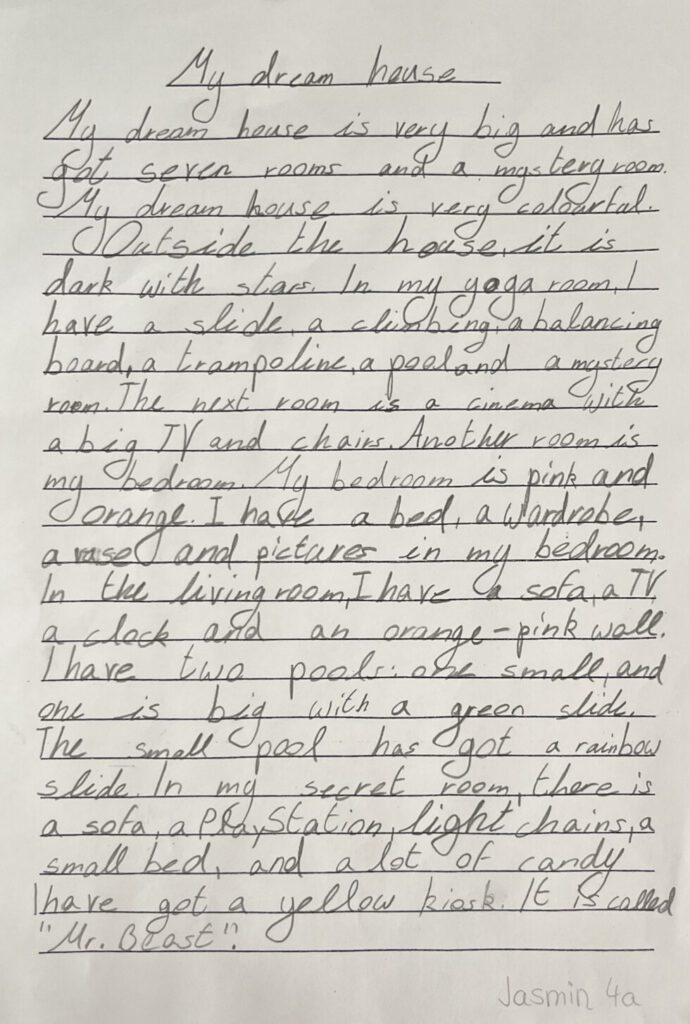 My dream house
My dream house is very big and has
got seven rooms and a mystery room.
My dream house is very colourful.
Outside the house, it is
dark with stars. In my yoga room, I
have a slide, a climbing, a balancing
board, a trampoline, a pool and a mystery
room. The next room is a cinema with
a big TV and chairs. Another room is
my bedroom. My bedroom is pink and
orange. I have a bed, a wardrobe,
a vase and pictures in my bedroom.
In the livingroom, I have a sofa, a TV,
a clock and an orange-pink wall.
I have two pools: one small, and
one is big with a green slide.
The small pool has got a rainbow
slide. In my secret room, there is
a sofa, a PlayStation, light chains, a
small bed, and a lot of candy
I have got a yellow kiosk. It is called
"Mr. Beast".
Jasmin 4a